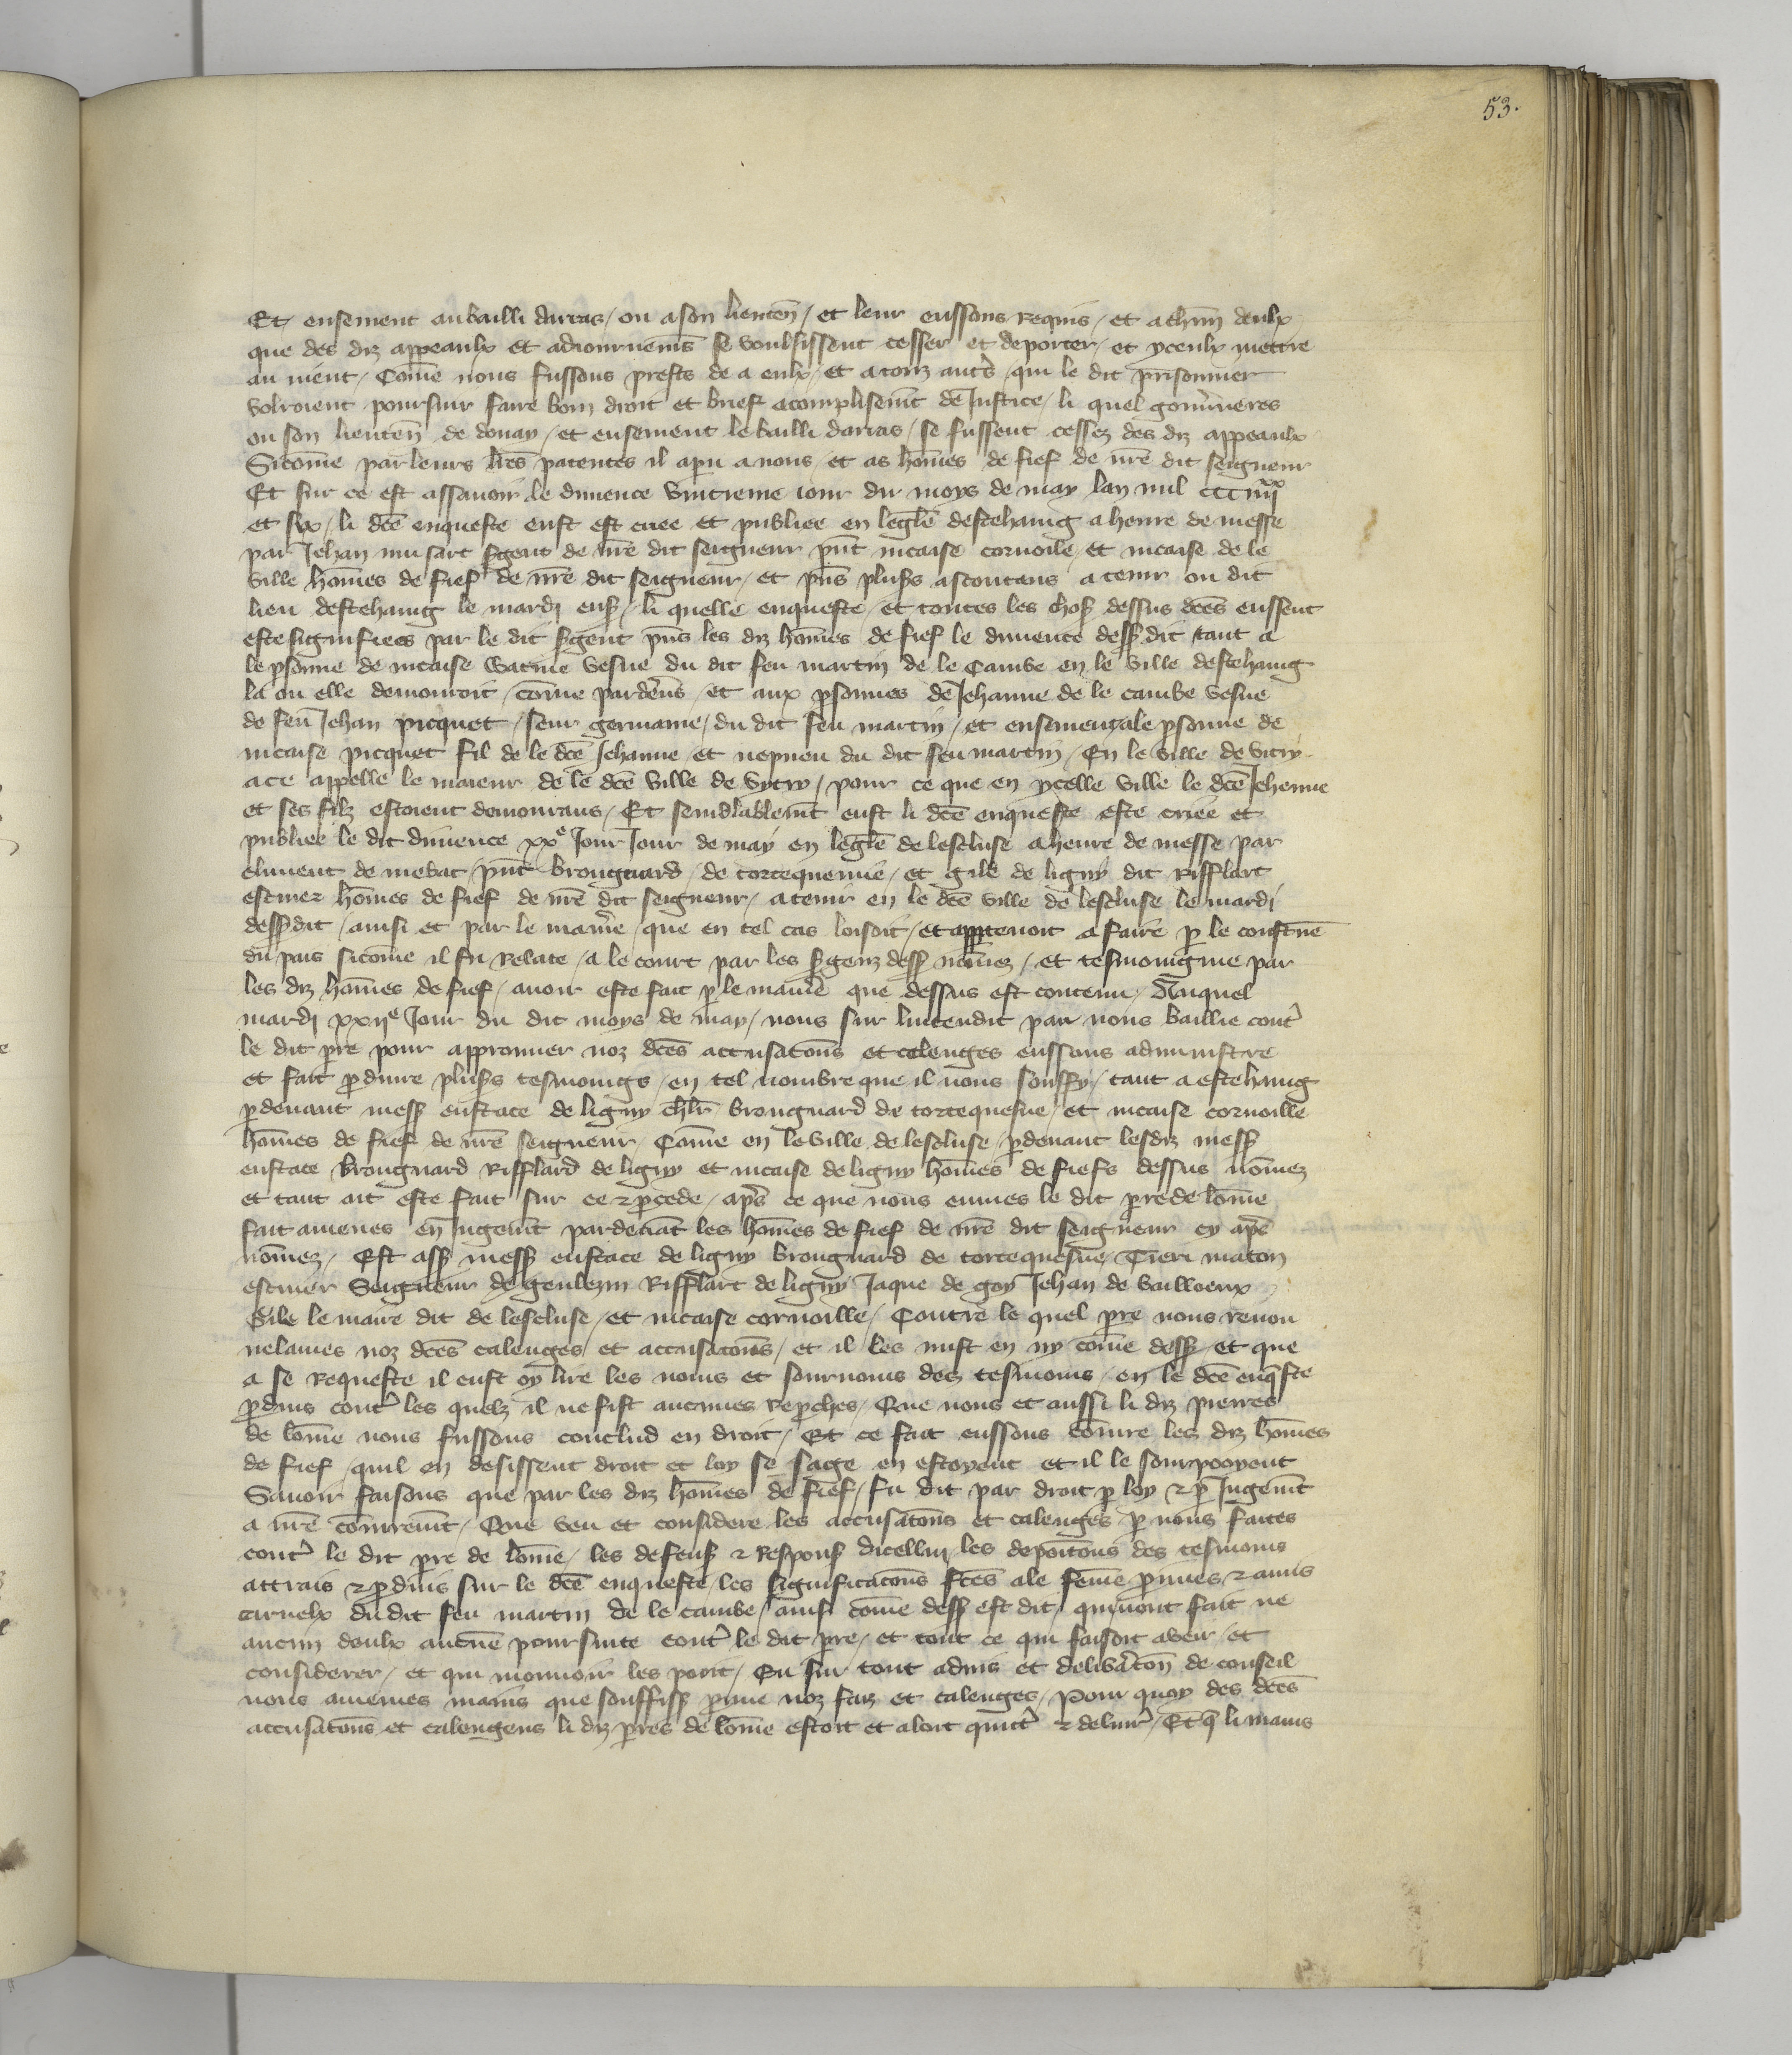 53.
Et ensement au bailli darras / ou a son lieuten̄ / et leur eussons requis / et a chūn deulx
que des diz appeaulx et adiournemēs se voulsissent cesser et deporter / et yceulx mettre
au nient / Cōme nous fussons prests de a eulx / et a touz autȓs qui le dit prisonnier
volroient poursuir faire bon droit et brief acomplisemt̄ de Justice / li quel gouv̄neres
ou son lieuten̄ de douay / et ensement le bailli darras / se fussent cessez des diz appeaulx
Sicōme par leurs lr̄es patentes il apru a nous / et as hōmes de fief de nr̄e dit seigneur
Et sur ce est assavoir le diuence vintieme iour du moys de may lan mil CCC iiiixx
et six / li dc̄e enqueste eust est criee et publiee en legl̄e destehaing a heure de messe
par Jehan musart sgent de nr̄e dit seigneur pn̄t nicaise cornoile / et nicaise de le
ville hōmes de fief de nr̄e dit seigneur / et pn̄s plusrs ascoutans a tenir ou dit
lieu destehaing le mardi ens̄ / li quelle enqueste / et toutes les chos̄ dessus dc̄es eussent
este signifiees par le dit sgent pn̄s les diz hōmes de fief le diuence dess̄ dit tant a
le psonne de nicaise watine vesue du dit feu martin de le Cambe en le ville destehaing
la ou elle demouroit / cōme pardeu̅s / et aux psonnes de Jehanne de le cambe vesue
de feu Jehan picquet / seur germaine / du dit feu martin / et ensement a le psonne de
nicaise picquet fil de le dc̄e Jehanne / et nepueu du dit feu martin / En le ville de vitry
a ce appelle le maieur de le dc̄e ville de vytry / pour ce que en ycelle ville le dc̄e Jehenne
et ses filz estoient demourans / Et semblablemt̄ eust li dc̄e enqueste este criee et
publiee le dit diuence xxe Jour Jour de may en legl̄e de lescluse a heure de messe par
climent de mebat / pn̄t brongnard / de tortequenne / et gil̄e de ligny dit Rifflart
escuier hōmes de fief de nr̄e dit seigneur / a tenir en le dc̄e ville de lescluse le mardi
dess̄ dit / ainsi et par le manr̄e / que en tel cas loisoit / et apptenoit a faire p le coustūe
du pais sicōme il fu Relate / a le court par les sgenz dess̄ nōmez / et tesmongnie par
les diz hōmes de fief / auoir este fait p le manr̄e que dessus est contenu / Auquel
mardi xxiie Jour du dit moys de may / nous sur lintendit par nous baillie cont̓
le dit pr̄e pour approuuer noz dc̄es accusatōns et calenges eussons administre
et fait pduire plusrs tesmoings / en tel nombre que il nous souffy / tant a estehaing
pdeuant mess̄ eustace de ligny chl̄r brongnard de tortequesne / et nicaise cornoille
hōmes de fief de nr̄e seigneur / Cōme en le ville de lescluse / pdeuant lesdiz mess̄
eustace brongnard Rifflard de ligny et nicaise de ligny hōmes de fiefs dessus nōmez
et tant ait este fait sur ce & pcede / apr̄s ce que nous eumes le dit pr̄e de lōme
fait amenes en Jugemt̄ pardeuāt les hōmes de fief de nr̄e dit seigneur cy apr̄s
nōmez / Est ass̄ mess̄ eustace de ligny brongnard de tortequesne / Tieri maton
escuier Seigneur de genlezin Rifflart de ligny Jaque de goy Jehan de bailloeux
Gil̄e le maire dit de lescluse / et nicaise cornoille / Contre le quel pr̄e nous renou
uelames noz dc̄es calenges / et accusatōns / et il les mist en ny cōme dess̄ / et que
a se Requeste il eust oy lire les noms et sournoms dez tesmoins / en le dc̄e enq̄ste
pduis cont̓ les quelz il ne fist aucunes Repches / Que nous et aussi li diz pierres
de lōme nous fussons conclud en droit / Et ce fait eussons cōiure les diz hōmes
de fief / quil en desissent droit et loy se sage en estoyent et il le sourpooyent
Sauoir faisons que par les diz hōmes de fief / fu dit par droit p loy & p Jugemt̄
a nr̄e cōiuremt̄ / Que veu et considere les accusatōns et calenges p nous faites
cont̓ le dit pr̄e de lōme / les defens̄ & Respons̄ dicellui les depoitōns des tesmoins
attrais & pduis sur le dc̄e enqueste / les significatōns fc̄es a le feme pmes & amis
carnelx du dit feu martin de le cambe / ains̄ cōme dess̄ est dit / qui nont fait ne
aucun deulx aucūe poursuite cont̓ le dit pr̄e / et tout ce qui faisoit a veir / et
considerer / et qui mouuoir les poeit / Eu sur tout aduis et delib̄ratōn de conseil
nous auiemes mains que souffiss̄ pruue noz faiz et calenges / Pour quoy des dc̄es
accusatōns et calengens li diz pr̄es de lōme estoit et aloit quict̓ & deliur̓ / Et q̄ li mains